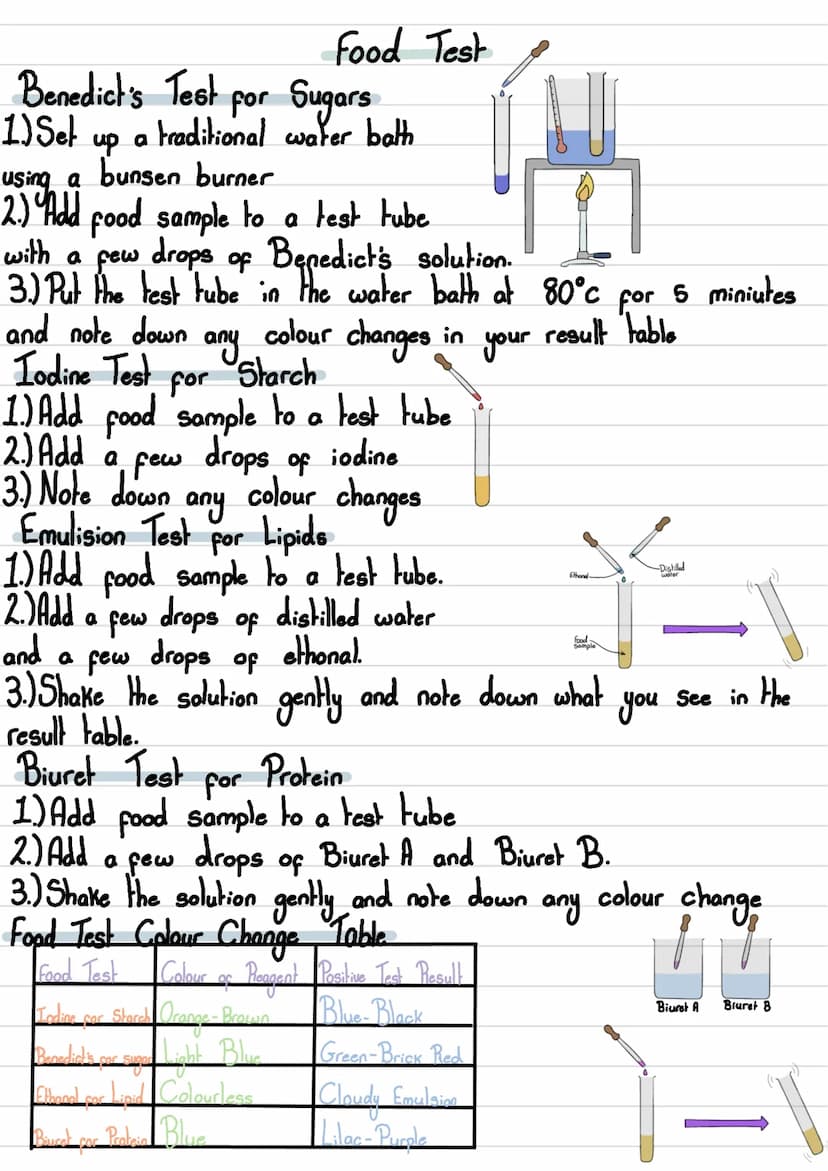 Food Test
Benedict's Test for Sugars
1.) Set up a traditional water bath
using a bunsen burner
2.) Add food sample to a test tube
with a few drops of Benedict's solution.
3.) Put the test tube in the water bath at 80°c for 5 miniutes
and note down any colour changes in your result table
Iodine Test for Starch
1.) Add food sample to a test tube
2.) Add a few drops of iodine
3.) Note down any colour changes
Emulision Test for Lipids
1.) Add food sample to a test tube.
2.) Add a few drops of distilled water
and a few drops of ethonal.
Ethanol
Distilled
water
Food
sample
3.) Shake the solution gently and note down what you see in the
result table.
Biuret Test for Protein
1.) Add food sample to a test tube
2.) Add a few drops of Biuret A and Biuret B.
3.) Shake the solution gently and note down any colour change
Food Test Colour Change Table
Food Test Colour of Reagent Positive Test Result
Iodine for Starch Orange-Brown Blue-Black
Benedict's for sugar Light Blue Green-Brick Red
Ethanol for Lipid Colourless Cloudy Emulsion
Biuret for Protein Blue Lilac-Purple
Biuret A Biuret B